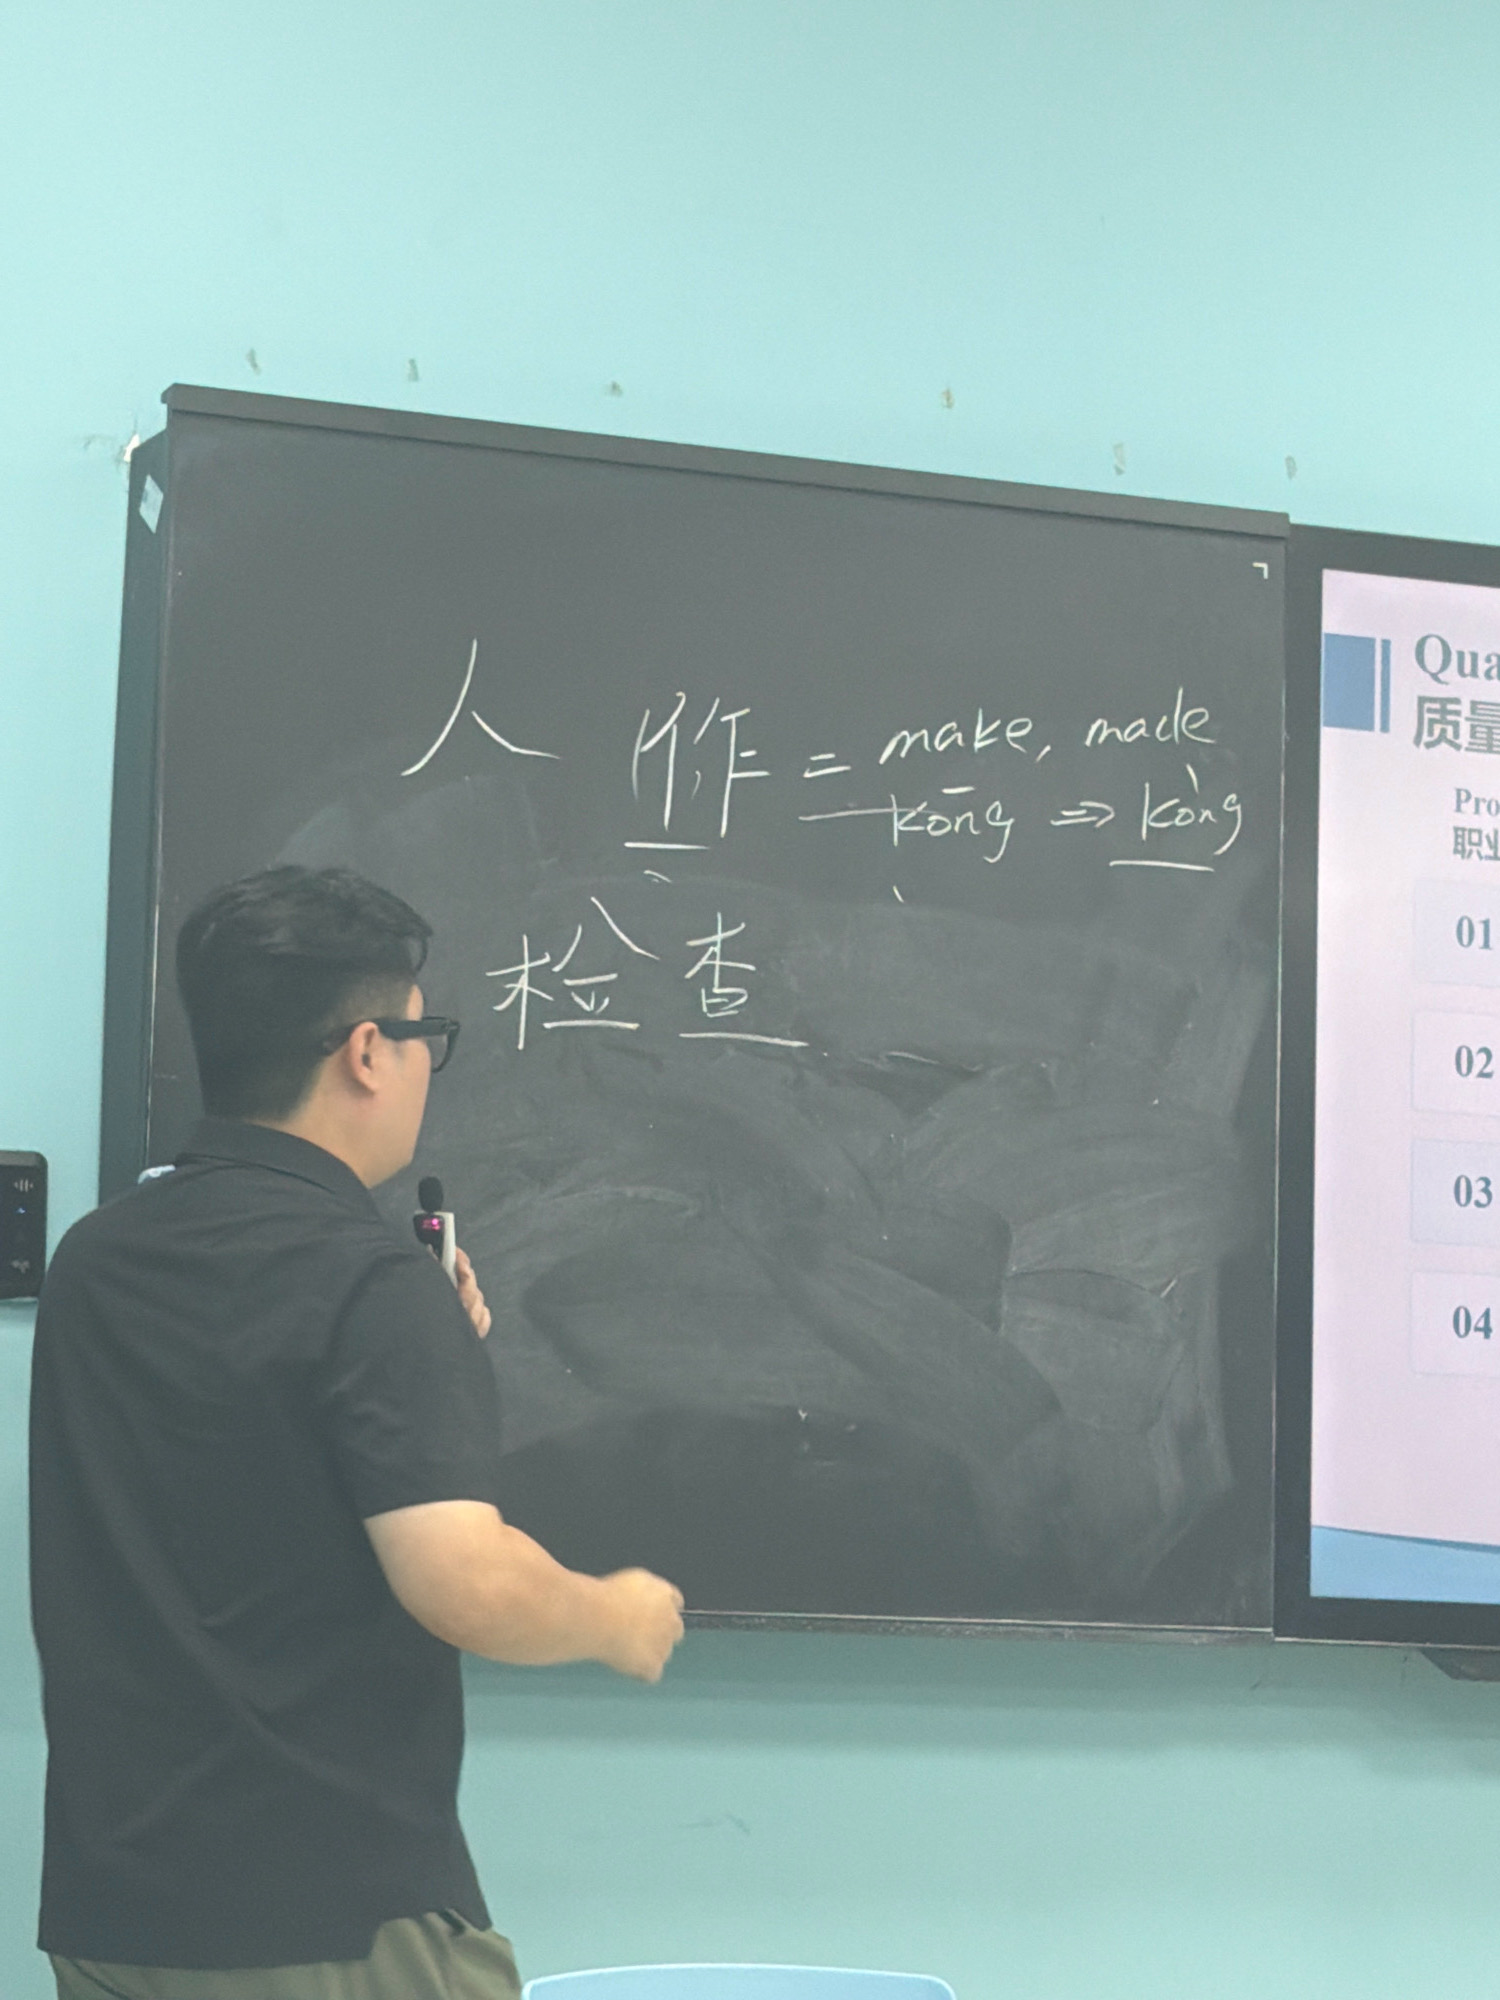 人 作 = make, made
kōng => kòng
检查
Qua
质量
Pro
职业
01
02
03
04